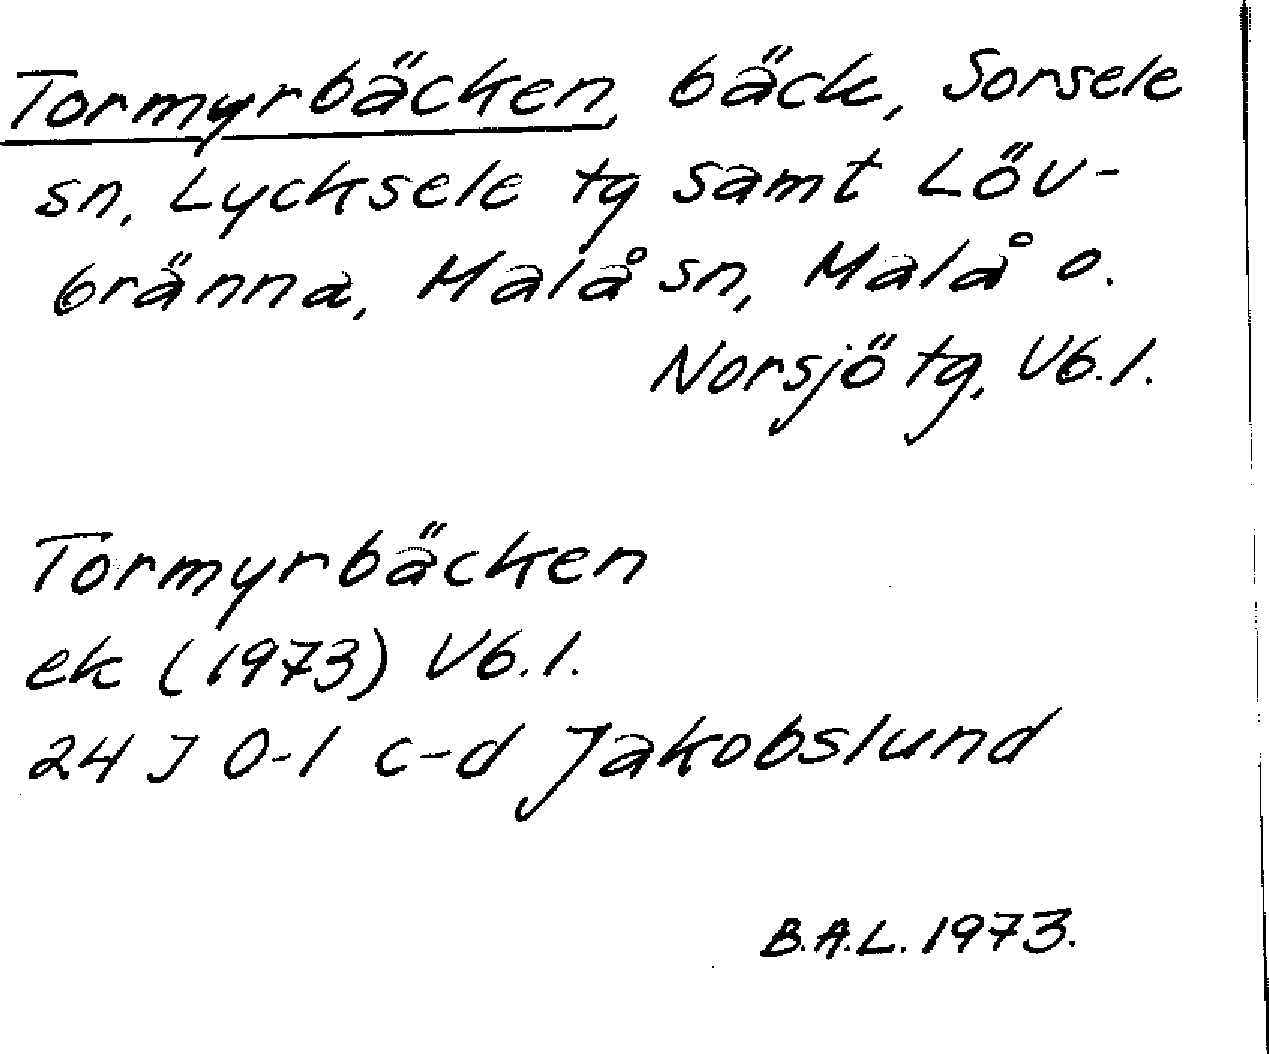 Tormyrbäcken, bäck, Sorsele
sn, Lycksele tg samt Löv-
bränna, Malå sn, Malå o.
Norsjö tg, Vb.l.
Tormyrbäcken
ek (1973) Vb.l.
24 J 0-1 c-d Jakobslund
B.A.L. 1973.